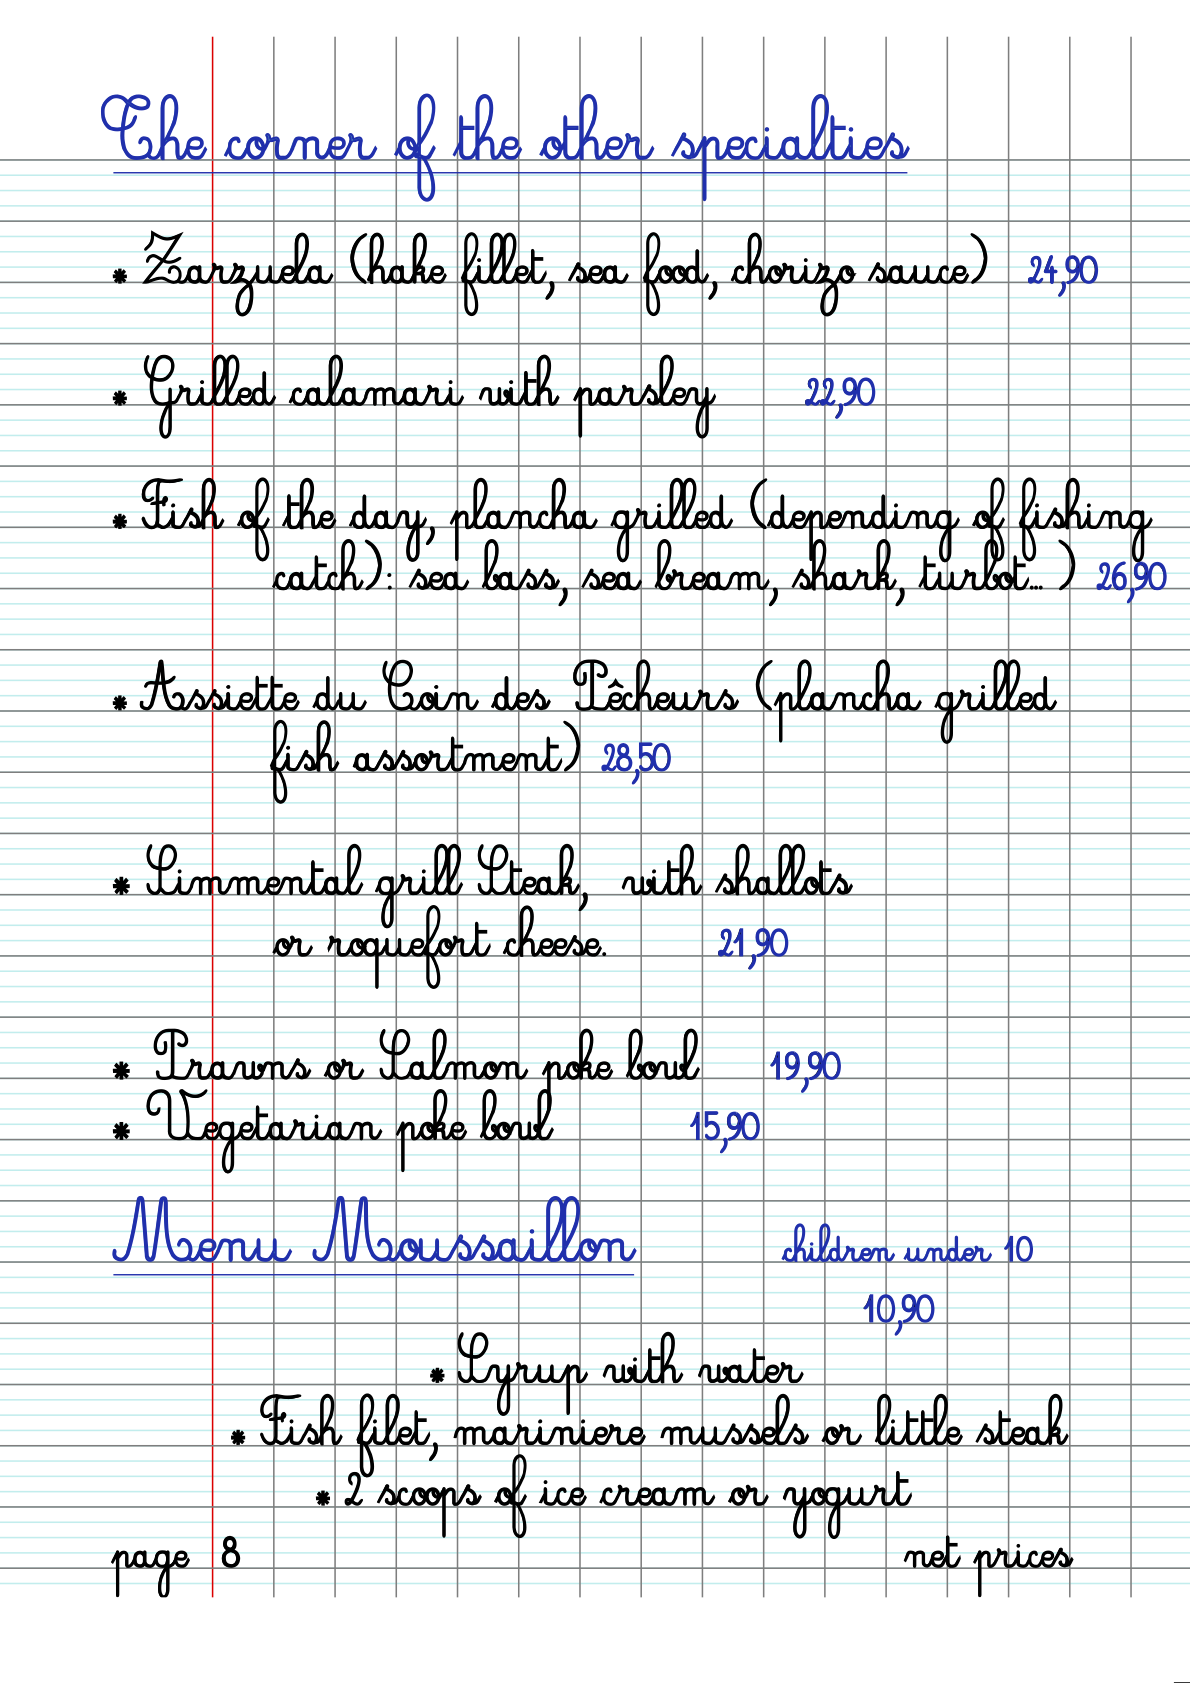 The corner of the other specialties
* Zarzuela (hake fillet, sea food, chorizo sauce) 24,90
* Grilled calamari with parsley 22,90
* Fish of the day, plancha grilled (depending of fishing
catch): sea bass, sea bream, shark, turbot... ) 26,90
* Assiette du Coin des Pêcheurs (plancha grilled
fish assortment) 28,50
* Simmental grill Steak, with shallots
or roquefort cheese. 21,90
* Prawns or Salmon poke bowl 19,90
* Vegetarian poke bowl 15,90
Menu Moussaillon children under 10
10,90
* Syrup with water
* Fish filet, mariniere mussels or little steak
* 2 scoops of ice cream or yogurt
page 8 net prices